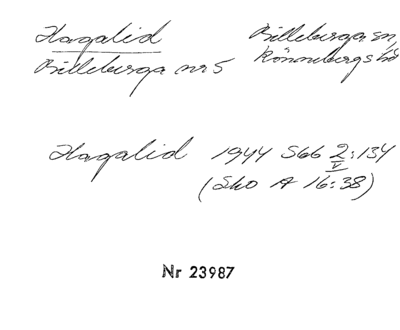 Hagalid
Billeberga sn,
Billeberga nr 5
Rönnebergs hd
Hagalid 1944 S66 2:134
V
(Sko A 16:38)
Nr 23987